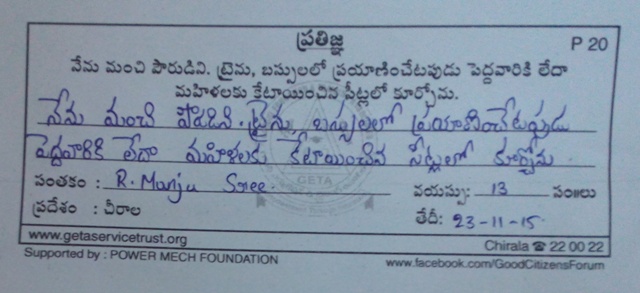 ప్రతిజ్ఞ P 20
నేను మంచి పౌరుడిని. ట్రైను, బస్సులలో ప్రయాణించేటపుడు పెద్దవారికి లేదా
మహిళలకు కేటాయించిన సీట్లలో కూర్చోను.
నేను మంచి పౌరుడిని. ట్రైను బస్సులలో ప్రయాణించేటప్పుడు
పెద్దవారికి లేదా మహిళలకు కేటాయించిన సీట్లలో కూర్చోను.
సంతకం : R. Manju Sree. వయస్సు: 13 సం॥లు
ప్రదేశం : చీరాల తేదీ: 23-11-15
GETA
www.getaservicetrust.org Chirala ☎ 22 00 22
Supported by : POWER MECH FOUNDATION www.facebook.com/GoodCitizensForum